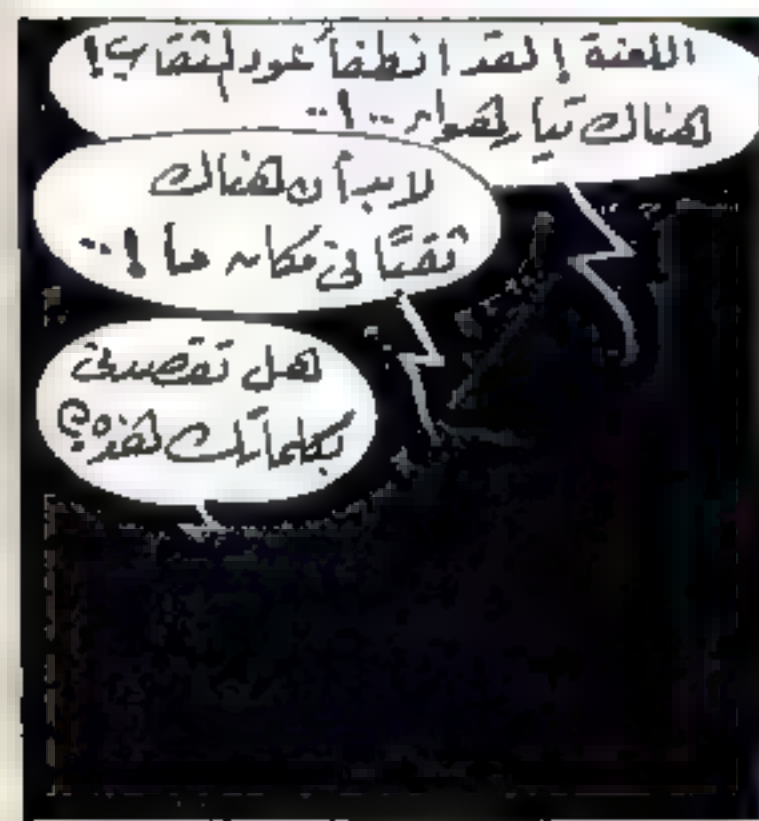 اللعنة ! لقد انطفأ عود الثقاب !
هناك تيار هواء ..!..
لابد أن هناك
ثقبًا فى مكان ما !..
هل تقصدنى
بكلماتك هذه ؟